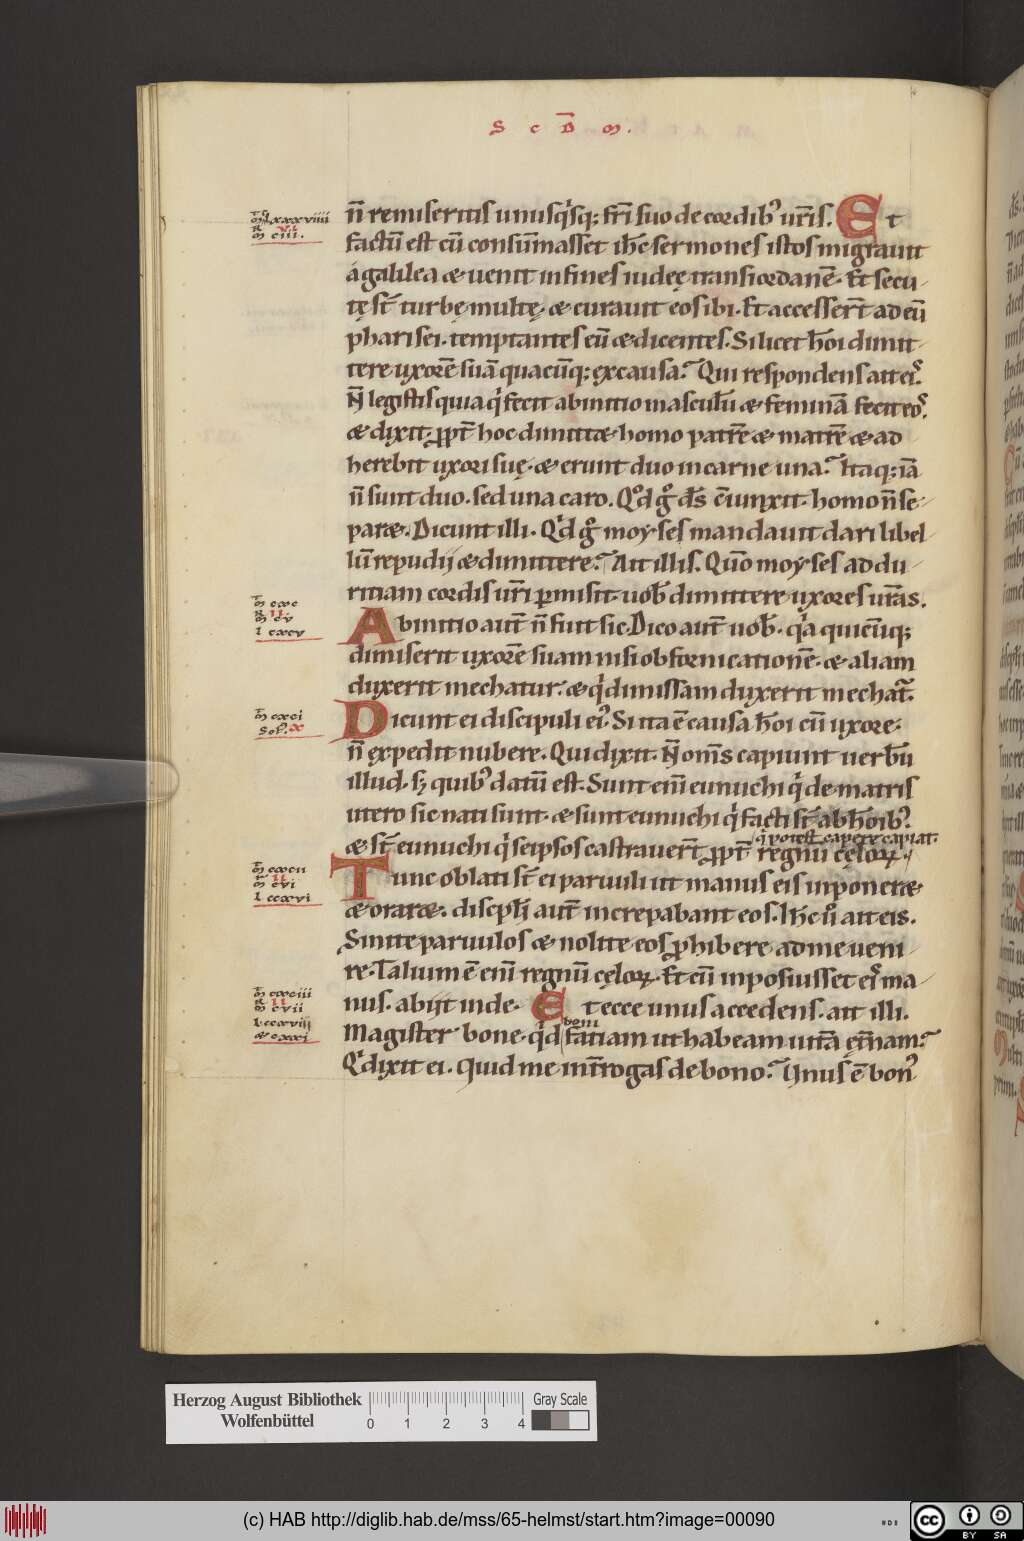 S c D̅ M.
n̅ remiseritis unusq'sq; fr̅i suo de cordib' ur̅is. Et
factu̅ est cu̅ consu̅masset ih̅c sermones istos migrauit
a galilea & uenit in fines iudeę trans iordane̅. Et secu-
tę st̅ turbę multę. & curauit eos ibi. Et accesser̅t ad eu̅
pharisei. temptantes eu̅ & dicentes. Si licet ho̅i dimit-
tere uxore̅ sua̅ quacu̅q; ex causa? Qui respondens ait ei'.
N̅ legistis quia q' fecit ab initio masculu̅ & femina̅ fecit eo'.
& dixit. ꝓpt̅ hoc dimitt& homo patre̅ & matre̅ & ad
herebit uxori suę. & erunt duo in carne una? Itaq; ia̅
n̅ sunt duo. sed una caro. Qd̊ g̊ ds̅ c̅iunxit. homo n̅ se-
par&. Dicunt illi. Q'd g̊ moyses mandauit dari libel-
lu̅ repudij & dimittere? Ait illis. Quo̅ moyses ad du-
ritiam cordis ur̅i ꝑmisit uob̅ dimittere uxores ur̅as.
Ab initio aut̅ n̅ fuit sic. Dico aut̅ uob̅. q'a quicu̅q;
dimiserit uxore̅ suam nisi ob fornicatione̅. & aliam
duxerit mechatur. & q' dimissam duxerit mechat̅.
Dicunt ei discipuli ei'. Si ita e̅ causa ho̅i cu̅ uxore.
n̅ expedit nubere. Qui dixit. N̅ om̅s capiunt uerbu̅
illud. s; quib' datu̅ est. Sunt eni̅ eunuchi q' de matris
utero sic nati sunt. & sunt eunuchi q' facti st̅ ab ho̅ib'.
q' potest capere capiat.
& st̅ eunuchi q' seipsos castrauer̅t ꝓpt̅ regnu̅ cęloꝝ.
Tunc oblati st̅ ei paruuli ut manus eis inponer&
& orar&. discipl̅i aut̅ increpabant eos. Ih̅c u̅ ait eis.
Sinite paruulos & nolite eos ꝓhibere ad me ueni
re. Talium e̅ eni̅ regnu̅ cęloꝝ. Et cu̅ inposuisset ei' ma-
nus. abijt inde. Et ecce unus accedens. ait illi.
boni
Magister bone. q'd faciam ut habeam uita̅ et̅nam?
Q' dixit ei. Quid me int̅rogas de bono? Unus e̅ bon'
M̅ cxc
R II
M cv
l cxcv
M̅ cxci
Sol'. x
M̅ cxcii
R II
M cvi
l ccxvi
M̅ cxciii
R II
M cvii
l. ccxviij
& cxxi
Herzog August Bibliothek
Wolfenbüttel
0 1 2 3 4
Gray Scale
(c) HAB http://diglib.hab.de/mss/65-helmst/start.htm?image=00090
cc
BY SA